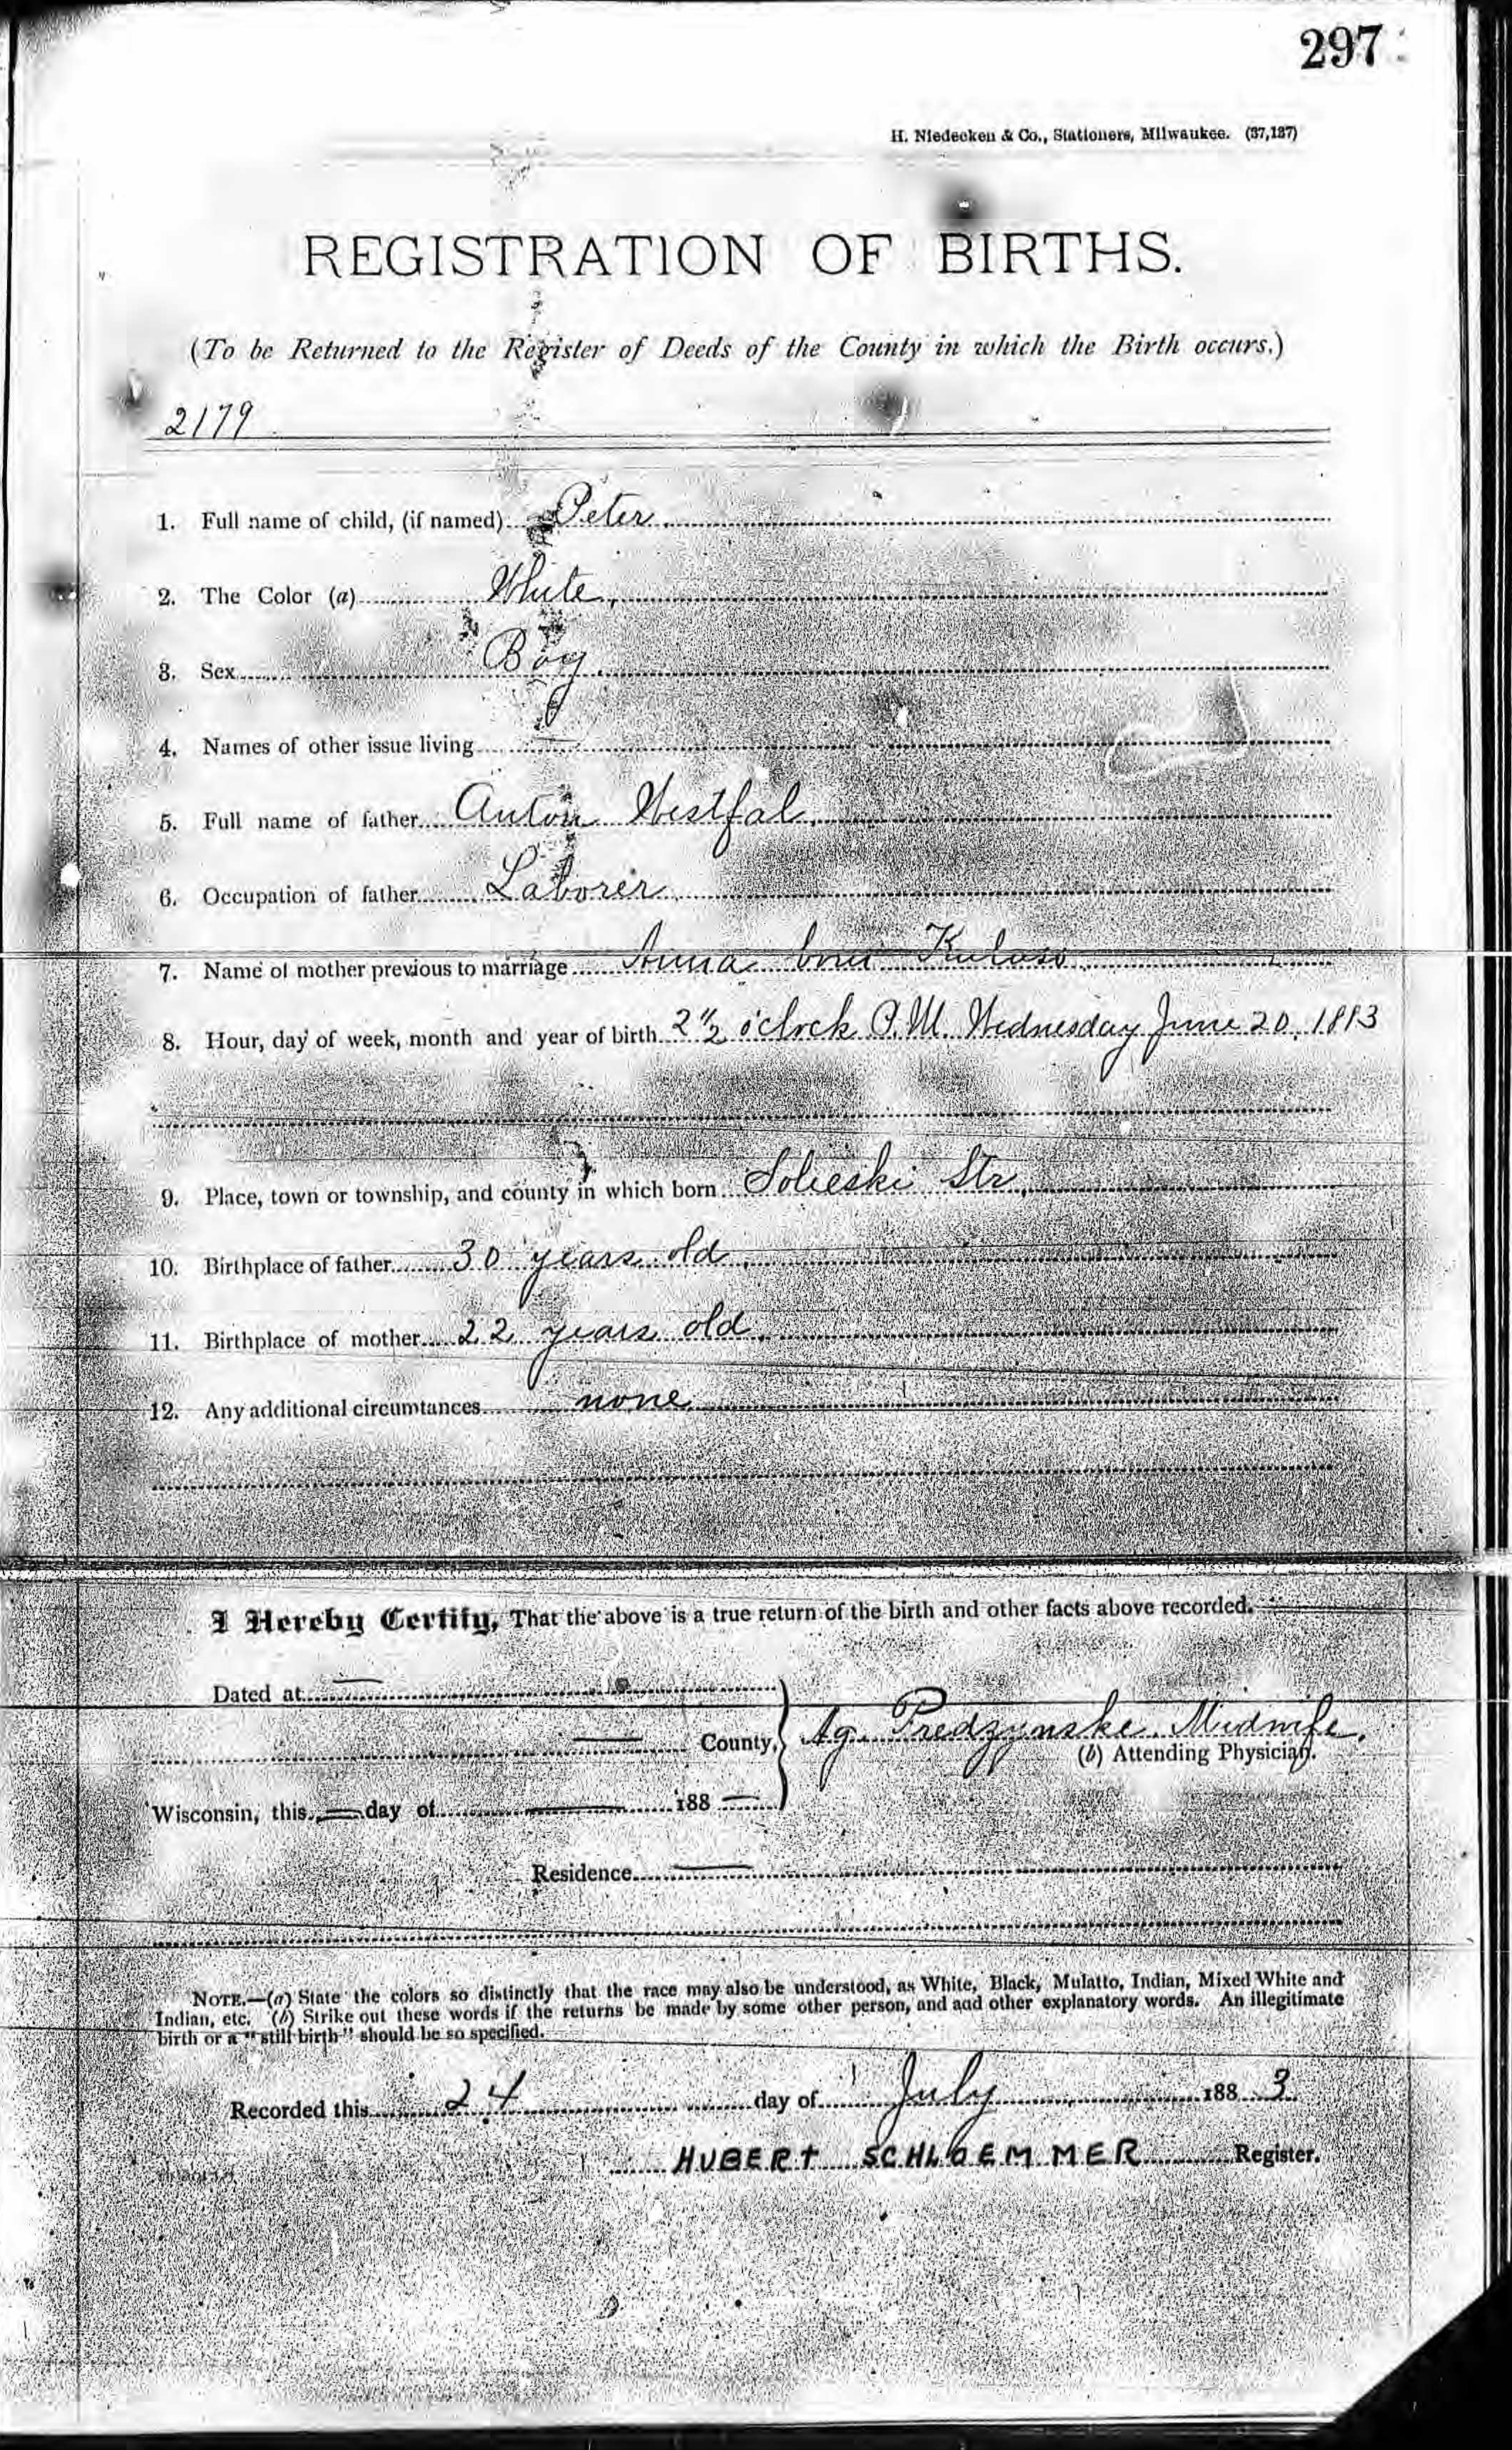 297
H. Niedecken & Co., Stationers, Milwaukee. (37,127)
REGISTRATION OF BIRTHS.
(To be Returned to the Register of Deeds of the County in which the Birth occurs.)
2179
1. Full name of child, (if named) Peter
2. The Color (a) White,
3. Sex Boy
4. Names of other issue living —
5. Full name of father Anton Westfal,
6. Occupation of father Laborer
7. Name of mother previous to marriage Anna born
8. Hour, day of week, month and year of birth 2 1/2 o'clock P.M. Wednesday June 20, 1883
9. Place, town or township, and county in which born Sobieski Str,
10. Birthplace of father 30 years old,
11. Birthplace of mother 22 years old,
12. Any additional circumtances none
I Hereby Certify, That the above is a true return of the birth and other facts above recorded.
Dated at —
— County, Ag. Predzynske Midwife.
(b) Attending Physician.
Wisconsin, this — day of — 188 —
Residence —
NOTE.—(a) State the colors so distinctly that the race may also be understood, as White, Black, Mulatto, Indian, Mixed White and
Indian, etc. (b) Strike out these words if the returns be made by some other person, and add other explanatory words. An illegitimate
birth or a "still birth" should be so specified.
Recorded this 24 day of July 1883
HUBERT SCHLOEMMER Register.